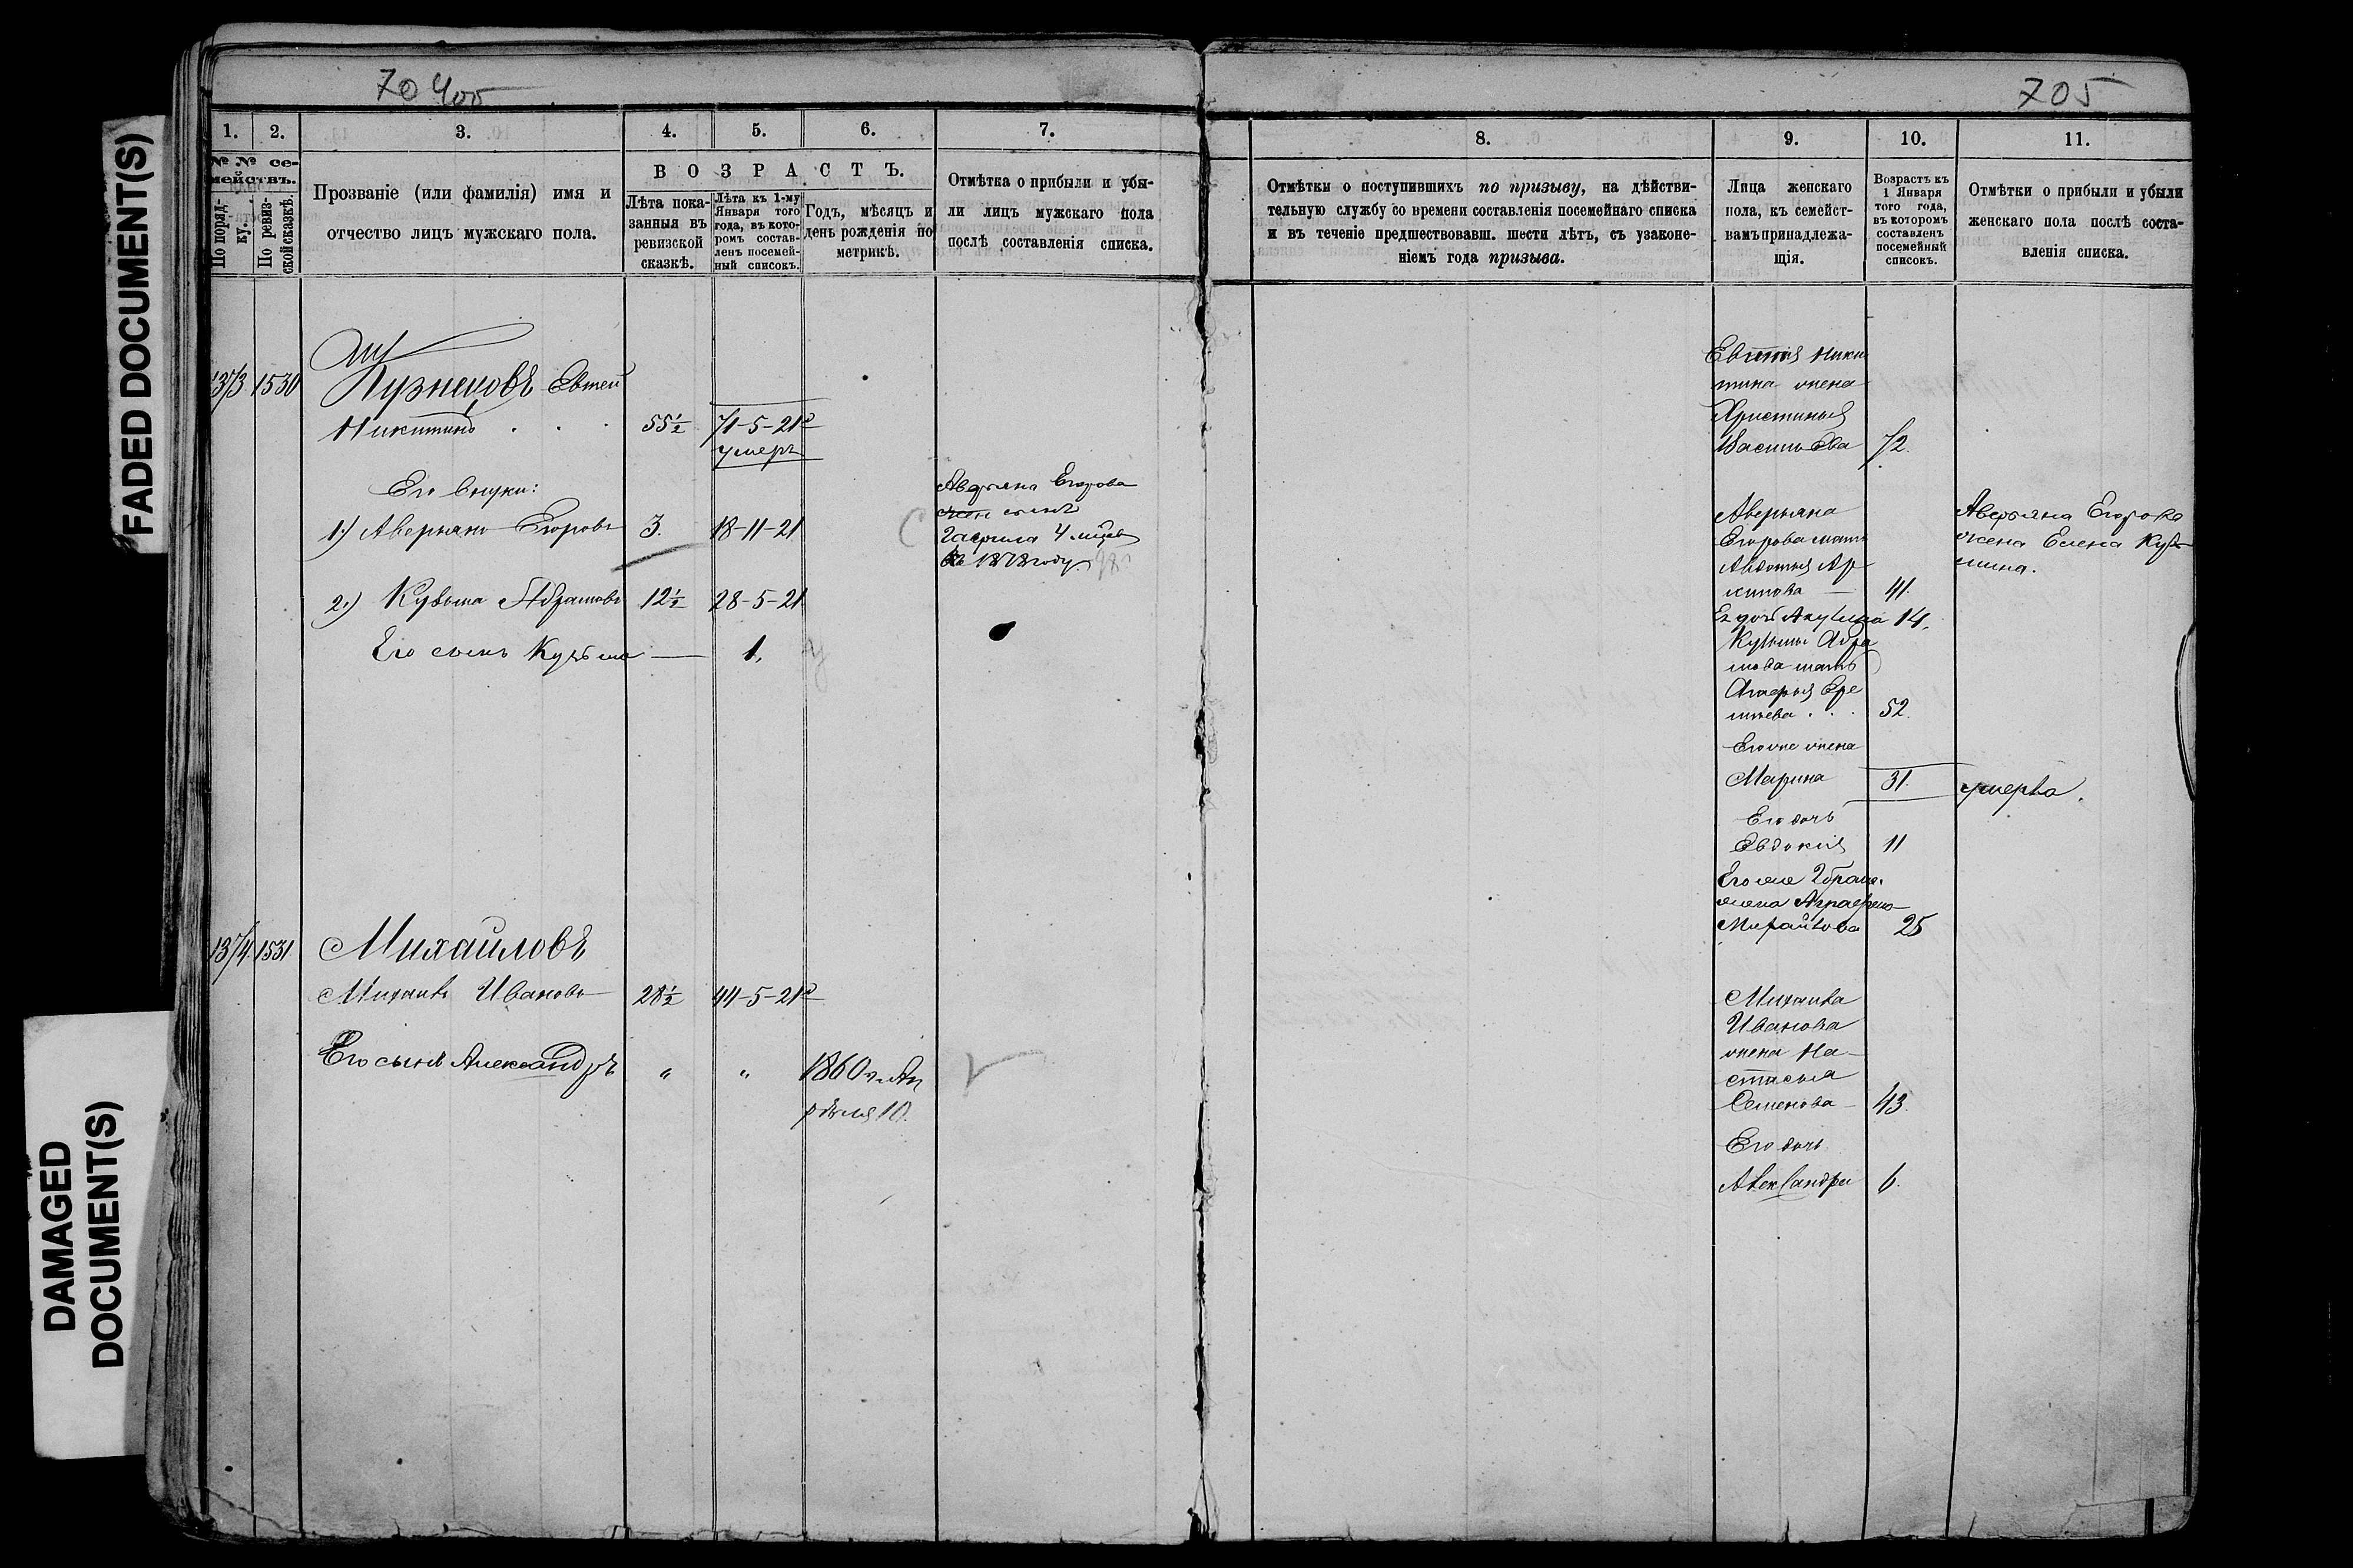 FADED DOCUMENT(S)
DAMAGED
DOCUMENT(S)
70
705
1. 2. 3. 4. 5. 6. 7.
№ № се-
мействъ.
По поряд-
ку.
По ревиз-
ской сказкѣ.
Прозваніе (или фамилія) имя и
отчество лицъ мужскаго пола.
ВОЗРАСТЪ.
Лѣта пока-
занныя въ
ревизской
сказкѣ.
Лѣта къ 1-му
Января того
года, въ кото-
ромъ состав-
ленъ посемей-
ный списокъ.
Годъ, мѣсяцъ и
день рожденія по
метрикѣ.
Отмѣтка о прибыли и убы-
ли лицъ мужскаго пола
послѣ составленія списка.
1373 1530 Кузнецовъ Евтей
Никитинъ . . . 55½ 71-5-21д
умеръ
Его внуки:
1) Аверьянъ Егоровъ 3. 18-11-21
Аверьяна Егорова
сынъ
Гаврила 4 мцев
въ 1878 году.
2.) Кузьма Абрамовъ 12½ 28-5-21
Его сынъ Кузьма — 1.
1374 1531 Михайловъ
Михаилъ Ивановъ 28½ 44-5-21д
Его сынъ Александръ " " 1860 г. Ап
рѣля 10.
8. 9. 10. 11.
Отмѣтки о поступившихъ по призыву, на дѣйстви-
тельную службу со времени составленія посемейнаго списка
и въ теченіе предшествовавш. шести лѣтъ, съ узаконе-
ніемъ года призыва.
Лица женскаго
пола, къ семейст-
вамъ принадлежа-
щія.
Возрастъ къ
1 Января
того года,
въ которомъ
составленъ
посемейный
списокъ.
Отмѣтки о прибыли и убыли
женскаго пола послѣ соста-
вленія списка.
Евтея Ники
тина жена
Христинья
Васильева 72.
Аверьяна
Егорова мать
Авдотья Ар
хипова — 41.
Аверьяна Егорова
жена Елена Кузь
мина.
Ея дочь Акулина 14.
Кузьмы Абра
мова мать
Агафья Ере
мѣева . . . 52.
Его же жена
Марина 31. умерла.
Его дочь
Евдокия 11
Его же 2 брака
жена Аграфена
25
Михаила
Иванова
жена На-
стасья
Семенова — 43.
Его дочь
Александра 6.